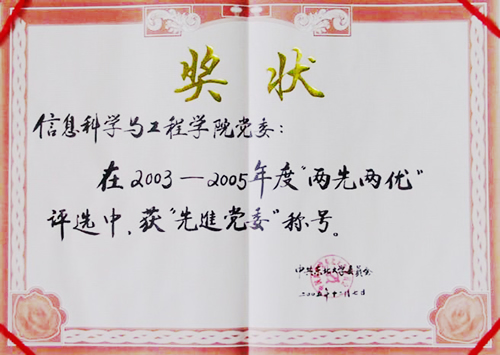 奖状
信息科学与工程学院党委:
在2003—2005年度"两先两优"
评选中,获"先進党委"称号。
中共东北大学委员会
二00五年十二月七日